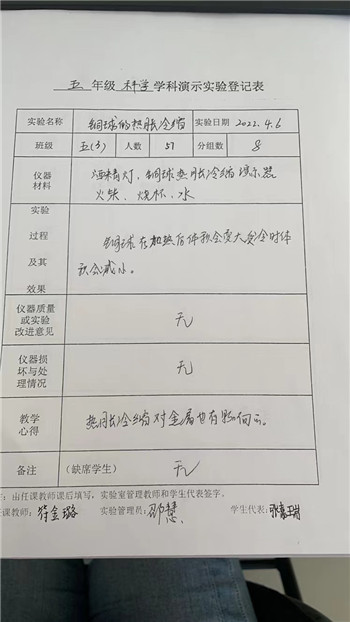 五 年级 科学 学科演示实验登记表
实验名称 铜球的热胀冷缩 实验日期 2022.4.6
班级 五(3) 人数 57 分组数 8
仪器材料 酒精灯、铜球热胀冷缩演示器
火柴、烧杯、水
实验过程及其效果 铜球在加热后体积会变大,冷全时体
积会减小。
仪器质量或实验改进意见 无
仪器损坏与处理情况 无
教学心得 热胀冷缩对金属也有影响。
备注 (缺席学生) 无
:由任课教师课后填写,实验室管理教师和学生代表签字。
课教师:符金璐 实验管理员:邵慧 学生代表: